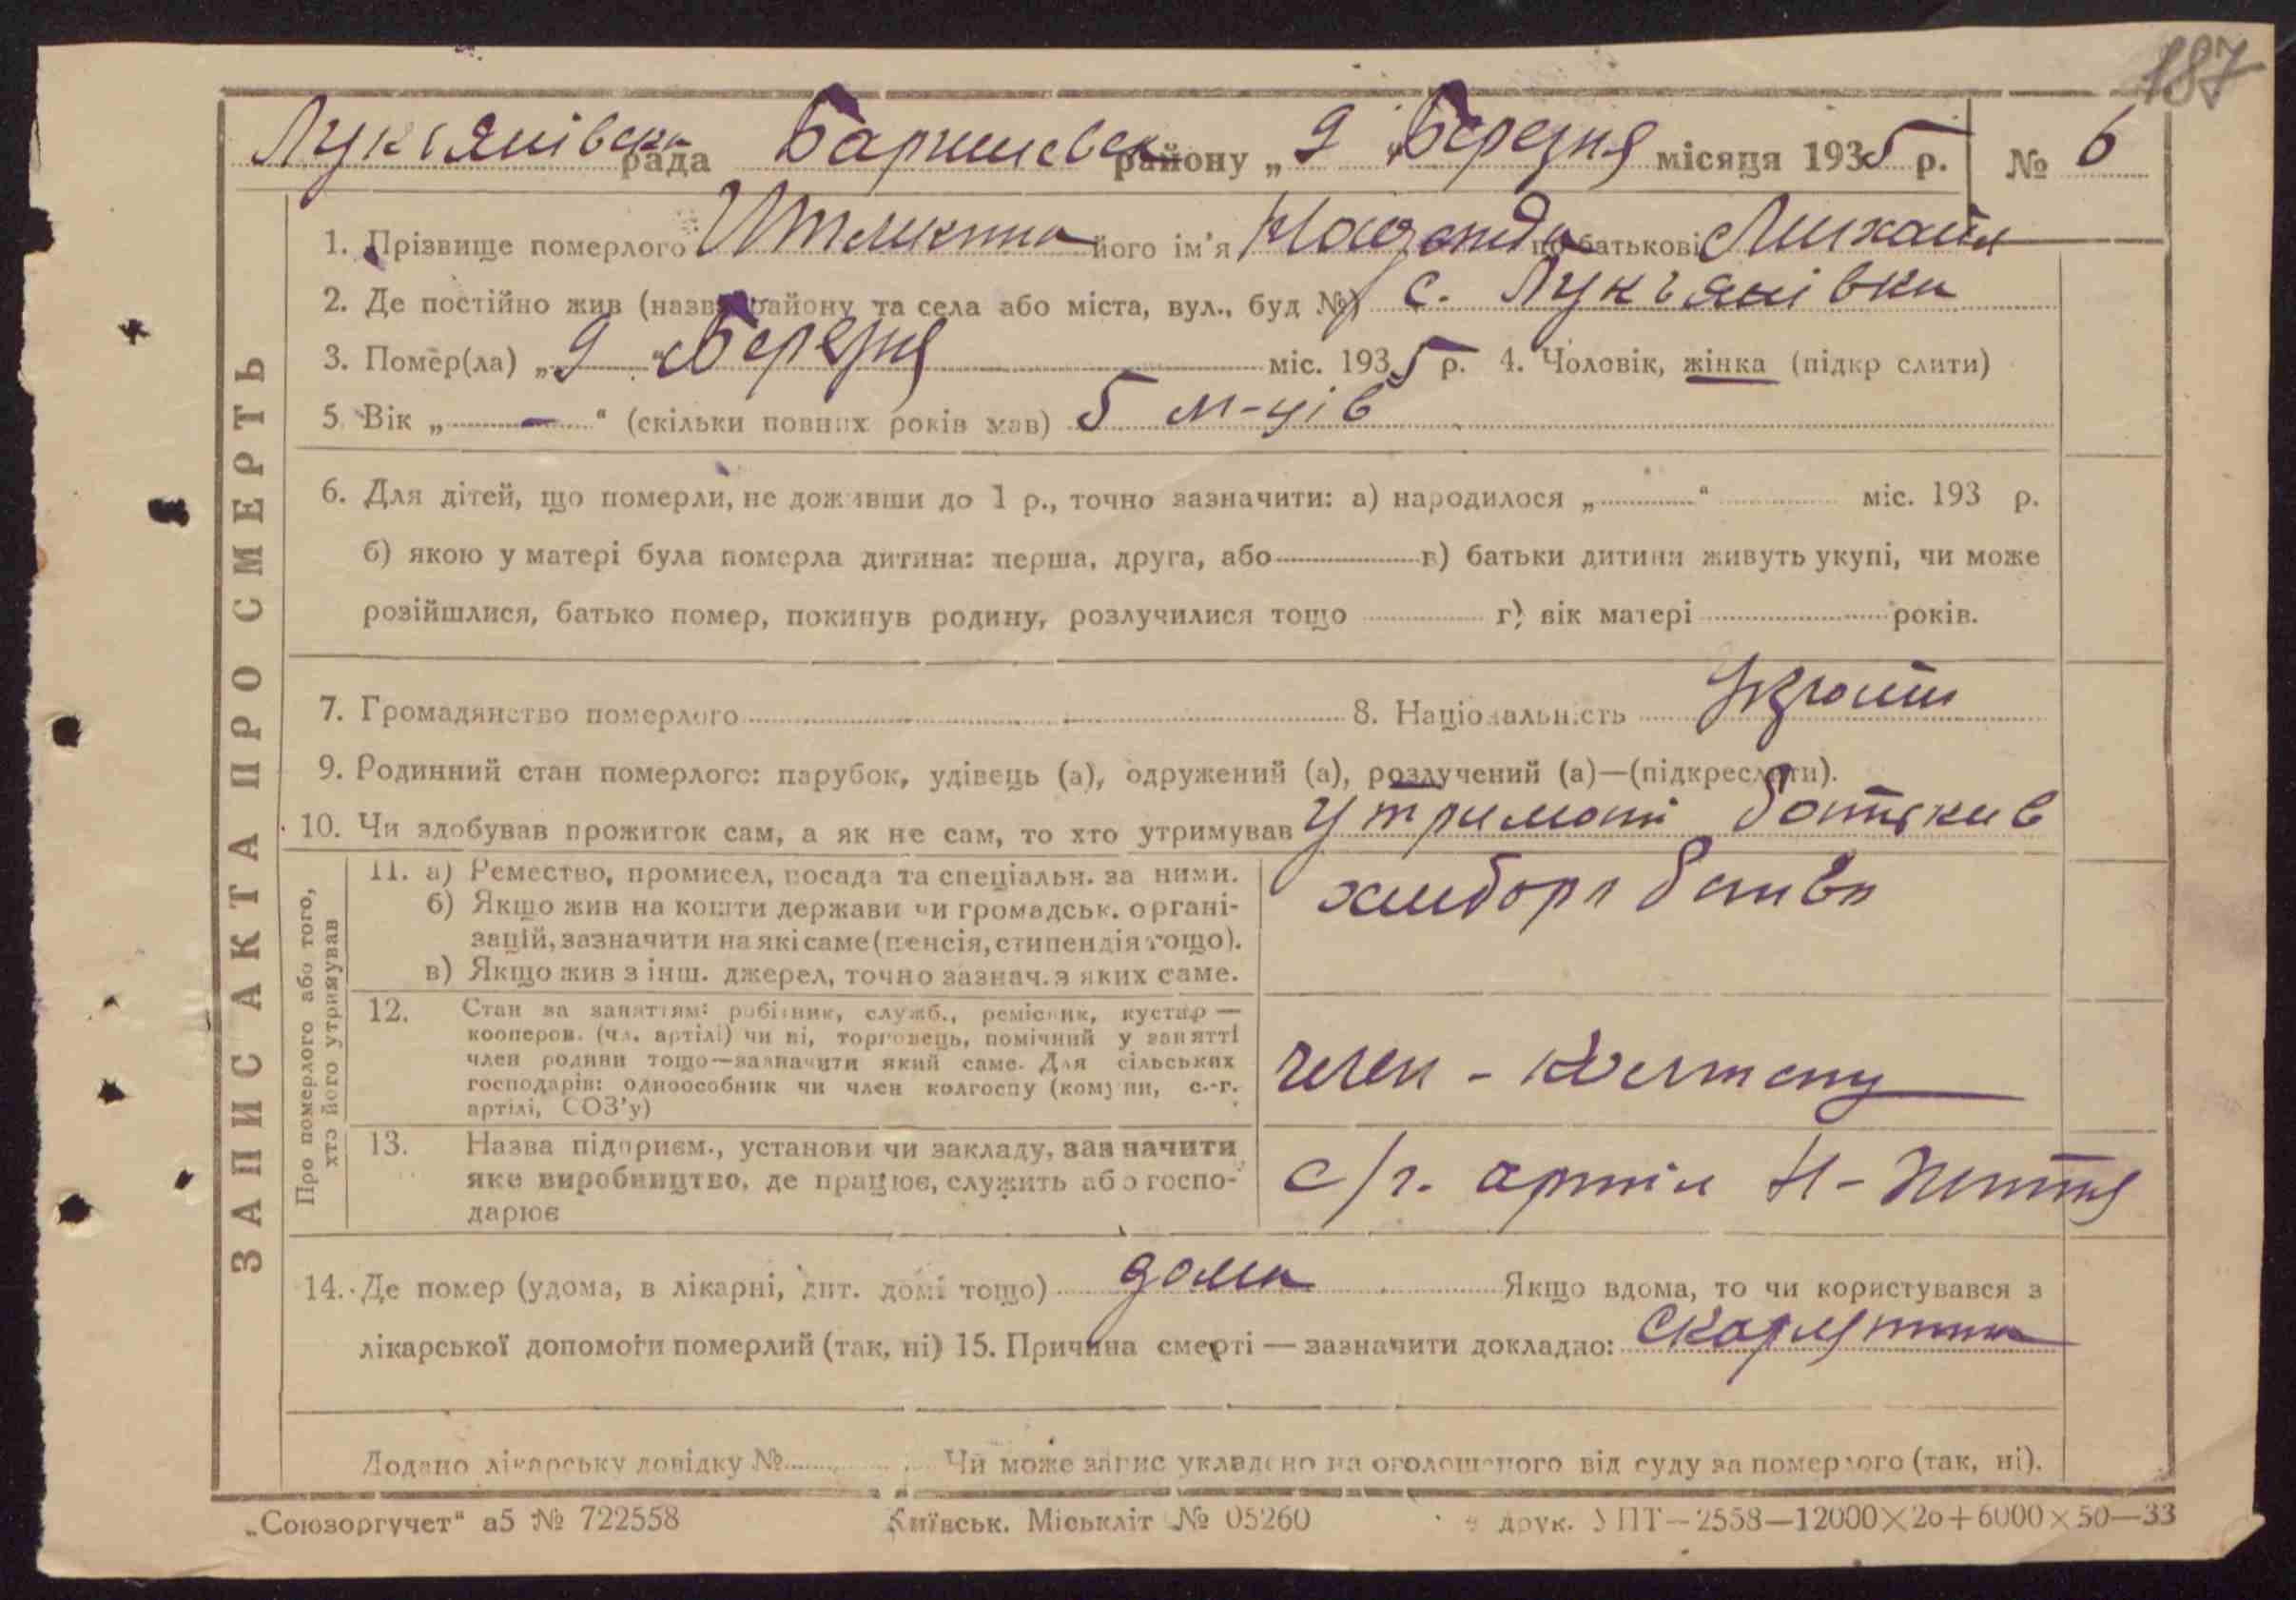 187
Лукъянівська рада Баришевськ району „ 9 " Березня місяця 1935 р. № 6
1. Прізвище померлого його ім'я по батькові Михайл
2. Де постійно жив (назва району та села або міста, вул., буд №) с. Лукъянівка
3. Помер(ла) „ 9 " Березня міс. 1935 р. 4. Чоловік, жінка (підкр слити)
5. Вік „ — " (скільки повних років мав) 5 м-ців
6. Для дітей, що померли, не доживши до 1 р., точно зазначити: а) народилося „ " міс. 193 р.
б) якою у матері була померла дитина: перша, друга, або в) батьки дитини живуть укупі, чи може
розійшлися, батько помер, покинув родину, розлучилися тощо г) вік матері років.
7. Громадянство померлого 8. Національність
9. Родинний стан померлого: парубок, удівець (а), одружений (а), розлучений (а)—(підкреслити).
10. Чи здобував прожиток сам, а як не сам, то хто утримував батьків
ЗАПИС АКТА ПРО СМЕРТЬ
Про померлого або того,
хто його утримував
11. а) Ремество, промисел, посада та спеціальн. за ними.
б) Якщо жив на кошти держави чи громадськ. органі-
зацій, зазначити на які саме (пенсія, стипендія тощо).
в) Якщо жив з інш. джерел, точно зазнач. з яких саме.
12. Стан за заняттям: робітник, служб., ремісник, кустар —
кооперов. (чл. артілі) чи ні, торговець, помічний у занятті
член родини тощо—зазначити який саме. Для сільських
господарів: одноосібник чи член колгоспу (комуни, с.-г.
артілі, СОЗ'у)
член -
13. Назва підприєм., установи чи закладу, зазначити
яке виробництво, де працює, служить або госпо-
дарює
с/г. артіл Н-Життя
14. Де помер (удома, в лікарні, дит. домі тощо) дома Якщо вдома, то чи користувався з
лікарської допомоги померлий (так, ні) 15. Причина смерті — зазначити докладно: Скарлятина
Додано лікарську довідку № Чи може запис укладено на оголошеного від суду за померлого (так, ні).
„Союзоргучет" а5 № 722558 Київськ. Міськліт № 05260 друк. УПТ—2558—12000×20+6000×50—33